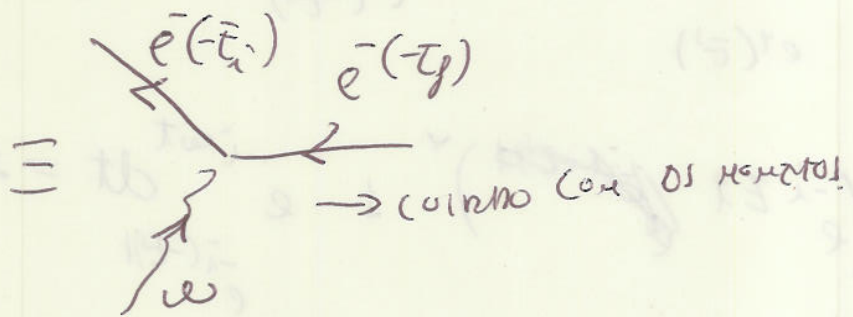 e⁻(-t̄ᵢ)
e⁻(-t̄f)
≡
→ CUIDADO COM OS MOMENTOS
ω